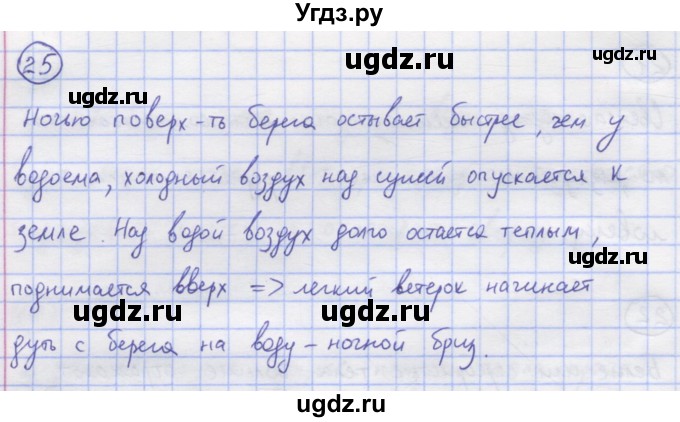 Угдз.ру
25
ugdz.ru
ugdz.ru ugdz.ru
Ночью поверх-ть берега остывает быстрее, чем у
ugdz.ru
водоема, холодный воздух над сушей опускается к
ugdz.ru ugdz.ru
земле. Над водой воздух долго остается теплым,
ugdz.ru
поднимается вверх => легкий ветерок начинает
ugdz.ru ugdz.ru
дуть с берега на воду - ночной бриз.
ugdz.ru
ugdz.ru